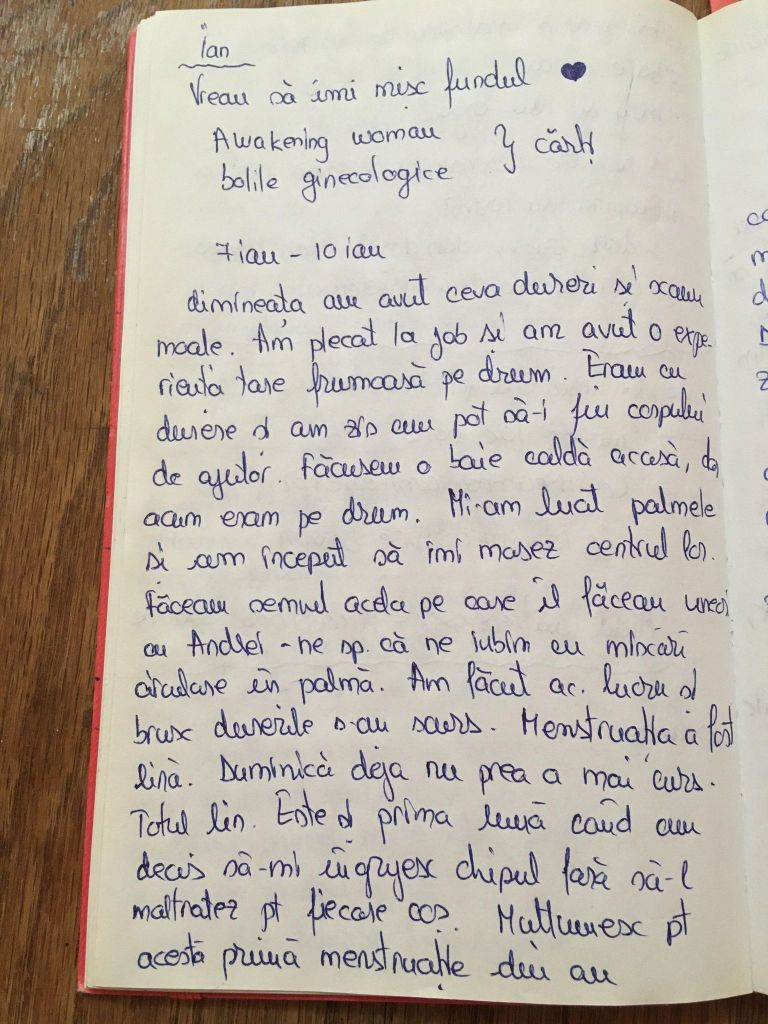 Ian
Vreau să îmi mișc fundul ♥
Awakening woman } cărți
bolile ginecologice
7 ian - 10 ian
dimineața am avut ceva dureri și scaun
moale. Am plecat la job și am avut o expe-
riență tare frumoasă pe drum. Eram cu
durere și am zis cum pot să-i fiu corpului
de ajutor. Făcusem o baie caldă acasă, da
acum eram pe drum. Mi-am luat palmele
și am început să îmi masez centrul lor.
Făceam semnul acela pe care îl făceam uneori
cu Andrei - ne sp. că ne iubim cu mișcări
circulare în palmă. Am făcut ac. lucru și
brusc durerile s-au scurs. Menstruația a fost
lină. Duminică deja nu prea a mai curs.
Totul lin. Este și prima lună când am
decis să-mi îngrijesc chipul fără să-l
maltratez pt fiecare coș. Mulțumesc pt
acestă primă menstruație din an